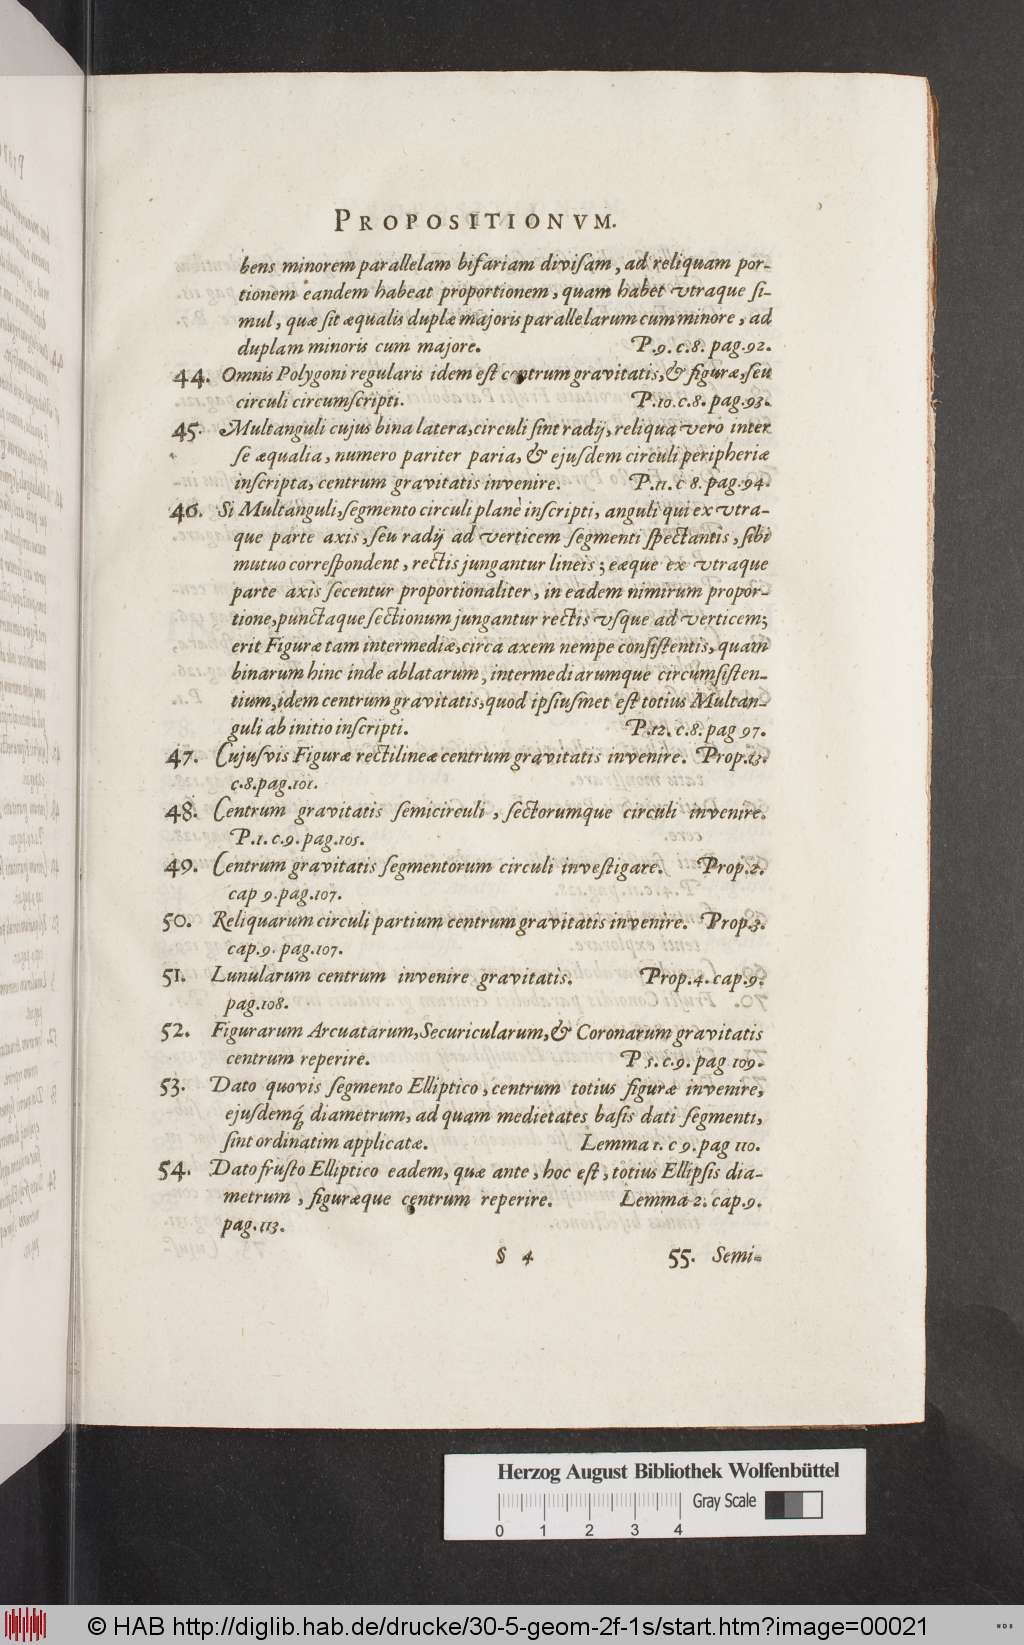 PROPOSITIONVM.
bens minorem parallelam bifariam divisam, ad reliquam por-
tionem eandem habeat proportionem, quam habet vtraque si-
mul, quæ sit æqualis duplæ majoris parallelarum cum minore, ad
duplam minoris cum majore. P.9. c.8. pag.92.
44. Omnis Polygoni regularis idem est centrum gravitatis, & figuræ, seu
circuli circumscripti. P.10.c.8. pag.93.
45. Multanguli cujus bina latera, circuli sint radij, reliqua vero inter
se æqualia, numero pariter paria, & ejusdem circuli peripheriæ
inscripta, centrum gravitatis invenire. P.11. c 8. pag.94.
46. Si Multanguli, segmento circuli planè inscripti, anguli qui ex vtra-
que parte axis, seu radij ad verticem segmenti spectantis, sibi
mutuo correspondent, rectis jungantur lineis; eæque ex vtraque
parte axis secentur proportionaliter, in eadem nimirum propor-
tione, punctaque sectionum jungantur rectis vsque ad verticem;
erit Figuræ tam intermediæ, circa axem nempe consistentis, quam
binarum hinc inde ablatarum, intermediarumque circumsisten-
tium, idem centrum gravitatis, quod ipsiusmet est totius Multan-
guli ab initio inscripti. P.12. c.8. pag 97.
47. Cujusvis Figuræ rectilineæ centrum gravitatis invenire. Prop.13.
c.8.pag.101.
48. Centrum gravitatis semicireuli, sectorumque circuli invenire.
P.1. c.9. pag.105.
49. Centrum gravitatis segmentorum circuli investigare. Prop.2.
cap 9.pag.107.
50. Reliquarum circuli partium centrum gravitatis invenire. Prop.3.
cap.9. pag.107.
51. Lunularum centrum invenire gravitatis. Prop.4. cap.9.
pag.108.
52. Figurarum Arcuatarum, Securicularum, & Coronarum gravitatis
centrum reperire. P 5. c.9. pag 109.
53. Dato quovis segmento Elliptico, centrum totius figuræ invenire,
ejusdemq́; diametrum, ad quam medietates basis dati segmenti,
sint ordinatim applicatæ. Lemma 1. c 9. pag 110.
54. Dato frusto Elliptico eadem, quæ ante, hoc est, totius Ellipsis dia-
metrum, figuræque centrum reperire. Lemma 2. cap.9.
pag.113.
§ 4 55. Semi-
Herzog August Bibliothek Wolfenbüttel
Gray Scale
0 1 2 3 4
© HAB http://diglib.hab.de/drucke/30-5-geom-2f-1s/start.htm?image=00021